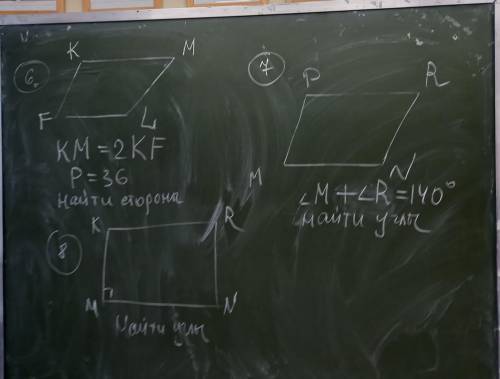 6.
K M
F L
KM = 2KF
P = 36
найти сторона
7
P R
M N
∠M + ∠R = 140°
найти углы
8
K R
M N
Найти углы